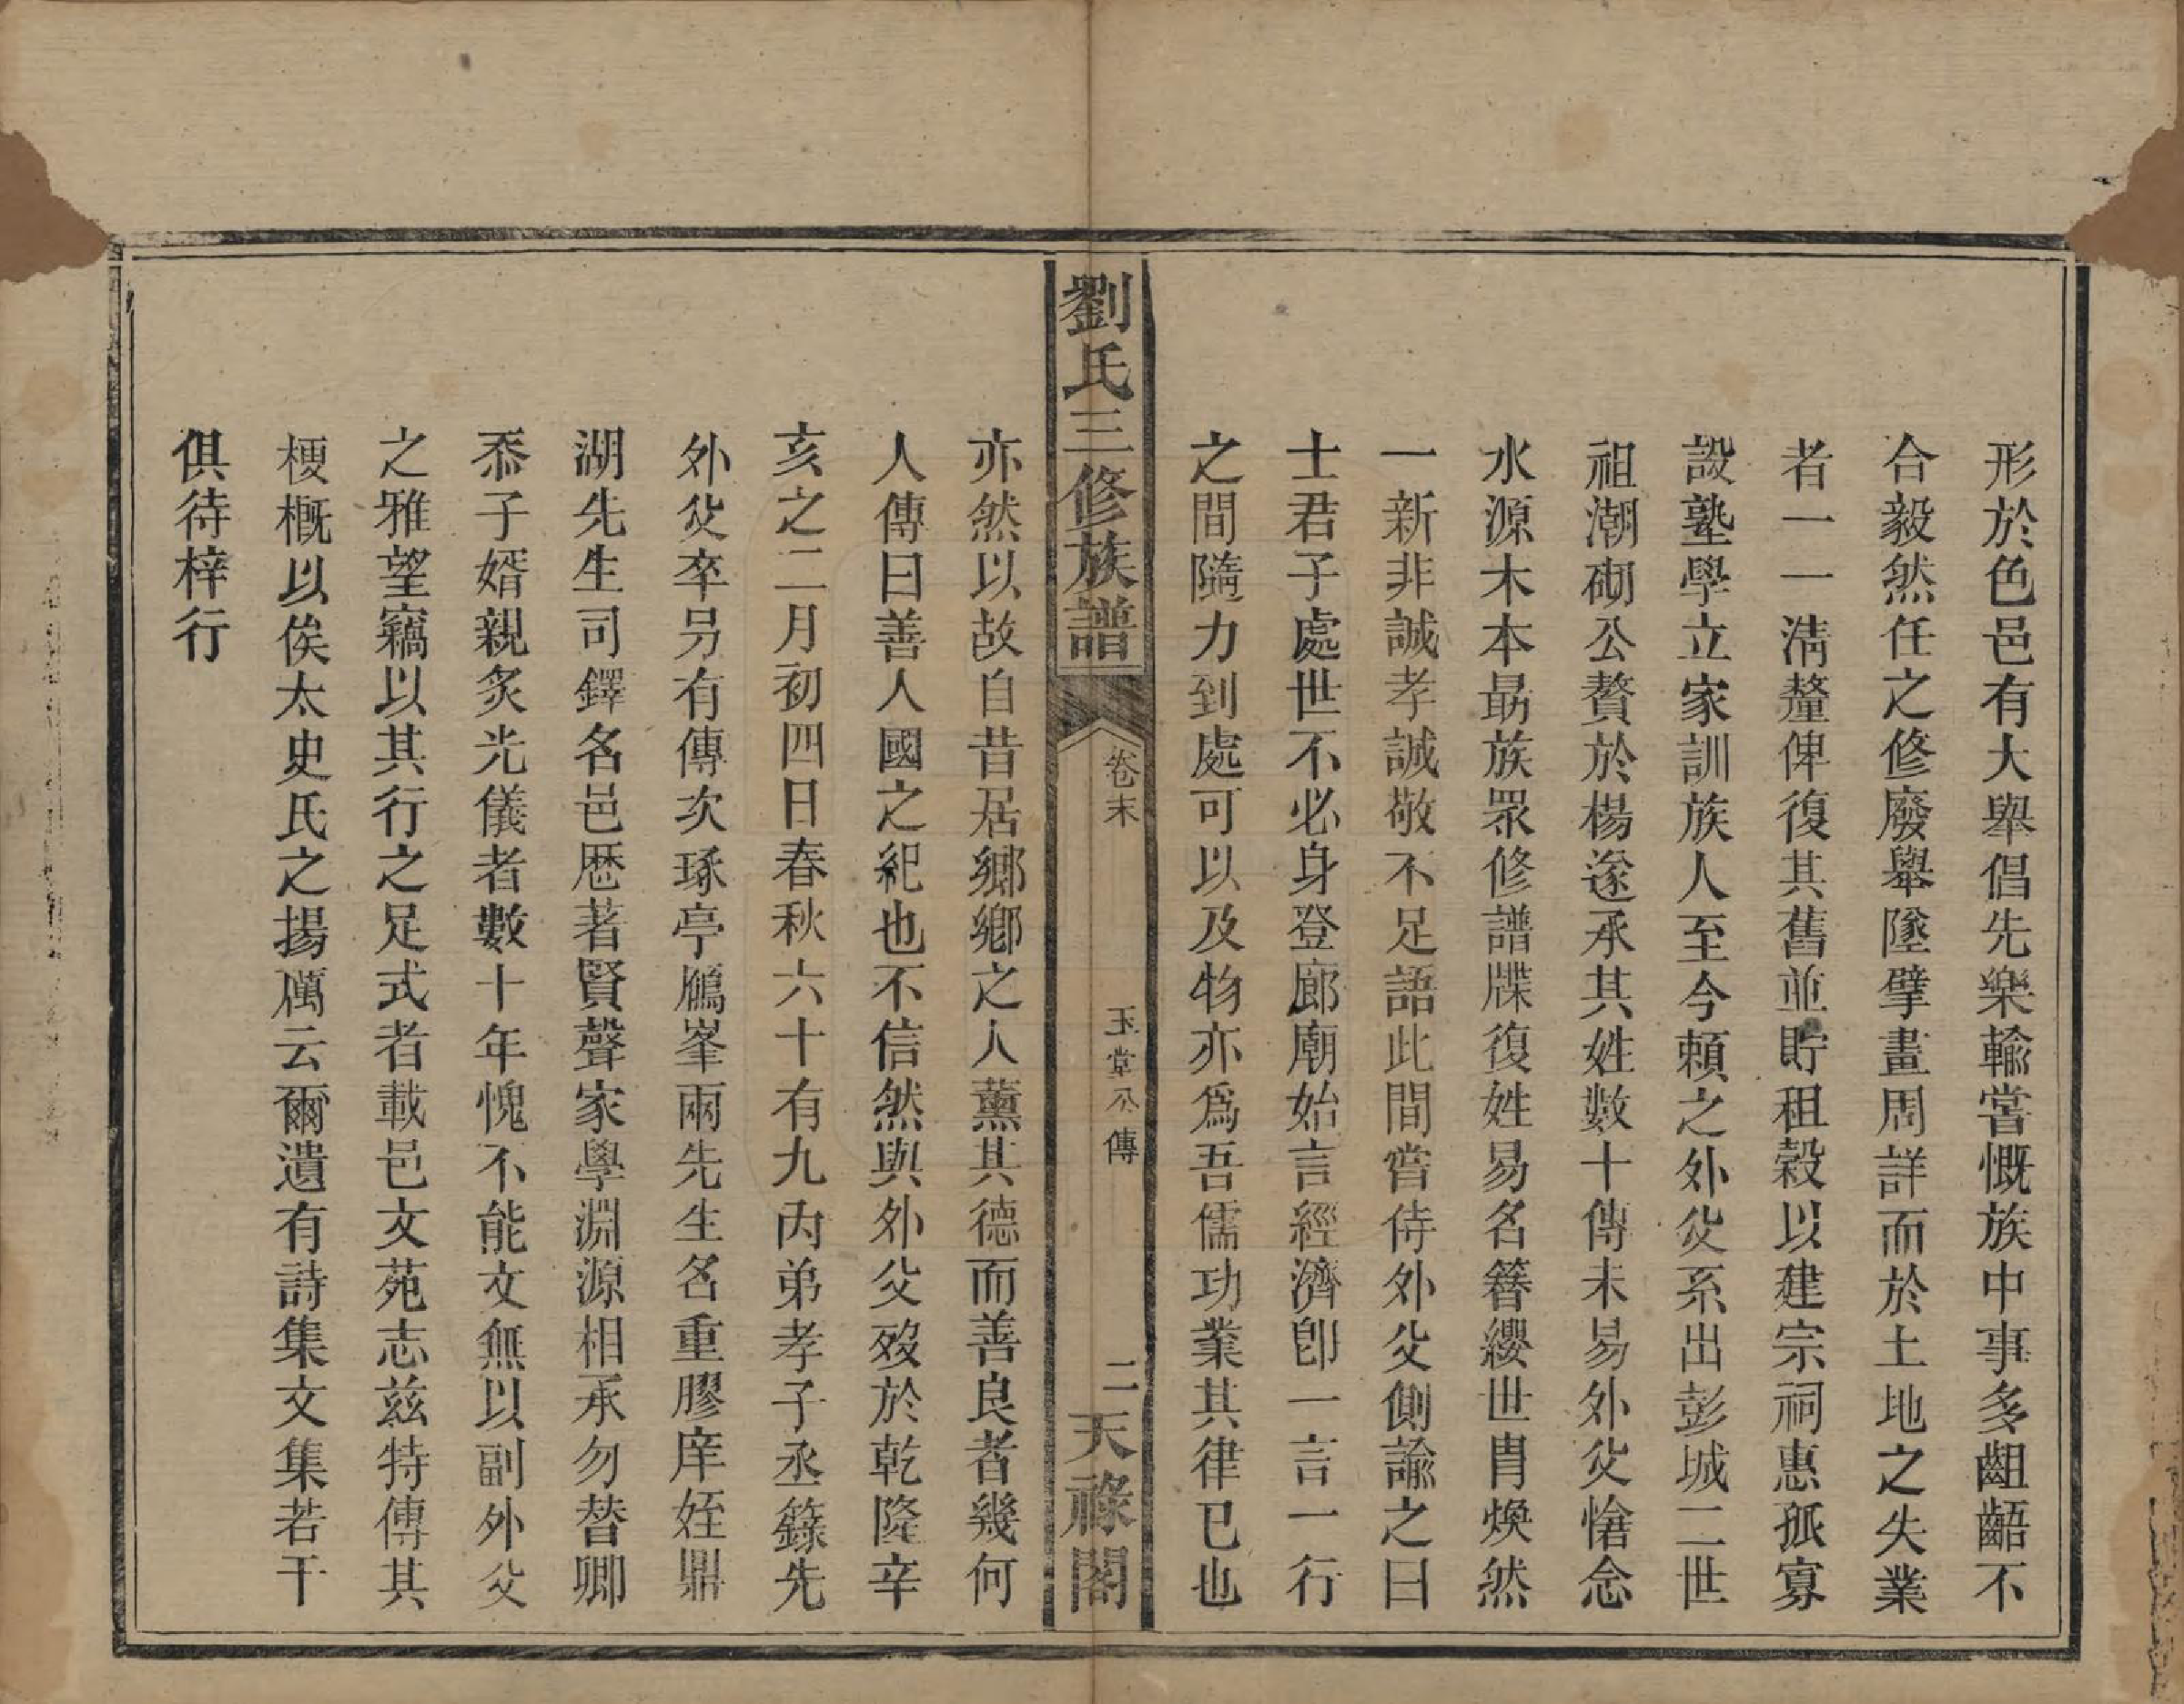 形於色邑有大舉倡先樂輸嘗慨族中事多齟齬不
合毅然任之修廢舉墜擘畫周詳而於土地之失業
者一一淸釐俾復其舊並貯租穀以建宗祠惠孤寡
設塾學立家訓族人至今賴之外父系出彭城二世
祖潮砌公贅於楊遂承其姓數十傳未易外父愴念
水源木本勗族眾修譜牒復姓易名簪纓世胄煥然
一新非誠孝誠敬不足語此間嘗侍外父側諭之曰
士君子處世不必身登廊廟始言經濟卽一言一行
之間隨力到處可以及物亦爲吾儒功業其律已也
劉氏三修族譜 卷末 玉堂公傳 二 天祿閣
亦然以故自昔居鄉鄉之人薰其德而善良者幾何
人傳曰善人國之紀也不信然與外父歿於乾隆辛
亥之二月初四日春秋六十有九內弟孝子丞籙先
外父卒另有傳次琢亭鴈峯兩先生名重膠庠姪鼎
湖先生司鐸名邑歴著賢聲家學淵源相承勿替卿
忝子婿親炙光儀者數十年愧不能文無以副外父
之雅望竊以其行之足式者載邑文苑志茲特傳其
梗概以俟太史氏之揚厲云爾遺有詩集文集若干
俱待梓行